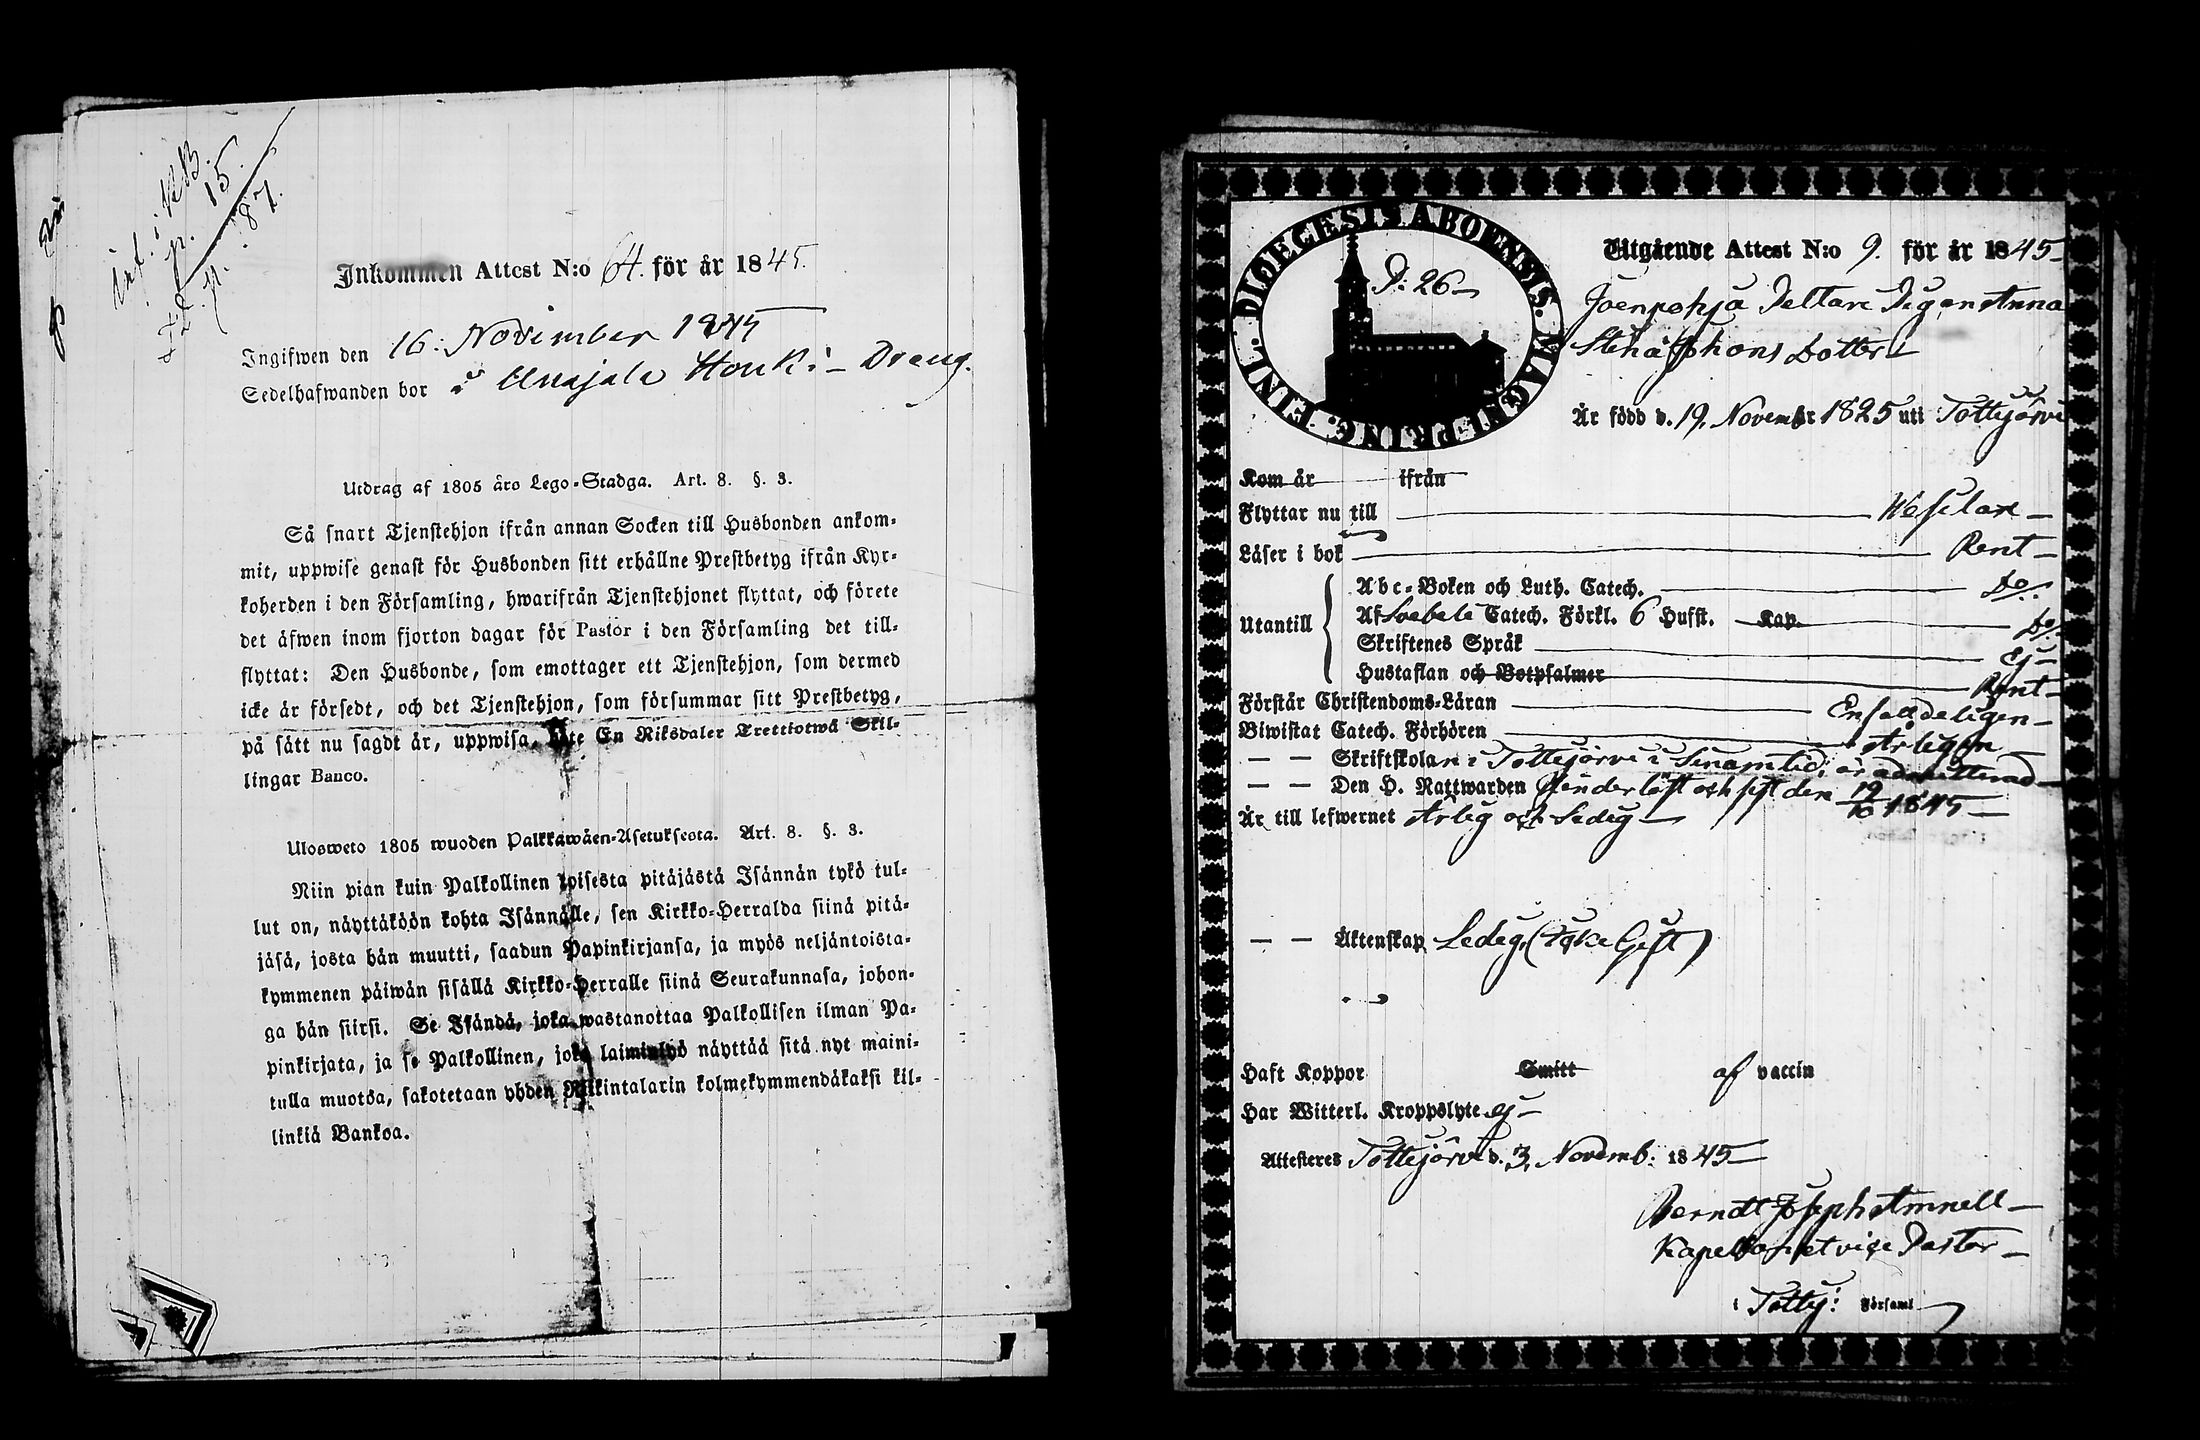 Inf. i KB.
p. 15.
Fd. n. 87.
Inkommen Attest N:o 64. för år 1845.
Ingifwen den 16. November 1845
Sedelhafwanden bor i Anajala Houki - Dreng.
Utdrag af 1805 års Lego-Stadga. Art. 8. §. 3.
Så snart Tjenstehjon ifrån annan Socken till Husbonden ankom-
mit, uppwise genast för Husbonden sitt erhållne Prestbetyg ifrån Kyr-
koherden i den Församling, hwarifrån Tjenstehjonet flyttat, och förete
det äfwen inom fjorton dagar för Pastor i den Församling det till-
flyttat: Den Husbonde, som emottager ett Tjenstehjon, som dermed
icke är försedt, och det Tjenstehjon, som försummar sitt Prestbetyg,
på sätt nu sagdt är, uppwisa, böte En Riksdaler Trettiotwå Skil-
lingar Banco.
Ulosweto 1805 wuoden Palkkawäen-Asetuksesta. Art. 8. §. 3.
Niin pian kuin Palkollinen toisesta pitäjästä Isännän tykö tul-
lut on, näyttäköön kohta Isännälle, sen Kirkko-Herralda siinä pitä-
jäsä, josta hän muutti, saadun Papinkirjansa, ja myös neljäntoista-
kymmenen päiwän sisällä Kirkko-Herralle siinä Seurakunnasa, johon-
ga hän siirsi. Se Isändä, joka wastanottaa Palkollisen ilman Pa-
pinkirjata, ja se Palkollinen, joka laiminlyö näyttää sitä nyt maini-
tulla muotoa, sakotetaan yhden Riikintalarin kolmekymmendäkaksi kil-
linkiä Bankoa.
DIOECESIS ABOENSIS. MAGNI PRINC. FINL.
P: 26
Utgående Attest N:o 9. för år 1845
Joenpohja Dettare Pigan Anna
Stina Johans Dotter
Är född d. 19. Novembr 1825 uti Tottijärvi
Kom år ifrån
Flyttar nu till Wesilax
Läser i bok Rent
Utantill
Abc-Boken och Luth. Catech. Do.
Af Svebelii Catech. Förkl. 6 Hufst. Kap. Do.
Skriftenes Språk Ej
Hustaflan och Botpsalmer Rent
Förstår Christendoms-Läran Enfaldeligen
Biwistat Catech. Förhören Årligen
— — Skriftskolan i Tottijärvi i sinom tid, är admitterad
— — Den H. Nattwarden Hinderlöst och sist den 19/10 1845
Är till lefwernet Ärlig och Sedig
— — Äktenskap Ledig, (Icke Gift)
Haft Koppor Smitt af vaccin
Har Witterl. Kroppslyte ej
Attesteres Tottijärvi d. 3. Novemb. 1845
Berndt Joseph Amnell
Kapellan et vice Pastor
i Tottij: Församl